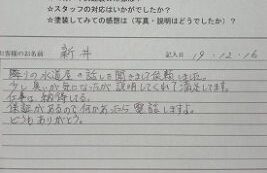 ☆スタッフの対応はいかがでしたか?
☆塗装してみての感想は(写真・説明はどうでしたか)?
お客様のお名前 新井 記入日 19.12.16
隣りの水道屋の話しを聞きまして依頼しました。
少し臭いが気になったが説明してくれて満足してます。
仕事は納得してる。
保証があるので何かあったら電話しますよ。
どうもありがとう。